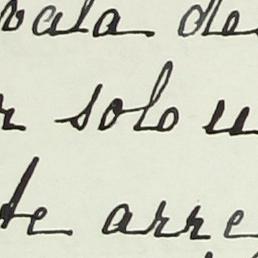 vala de
r solo u
te arre